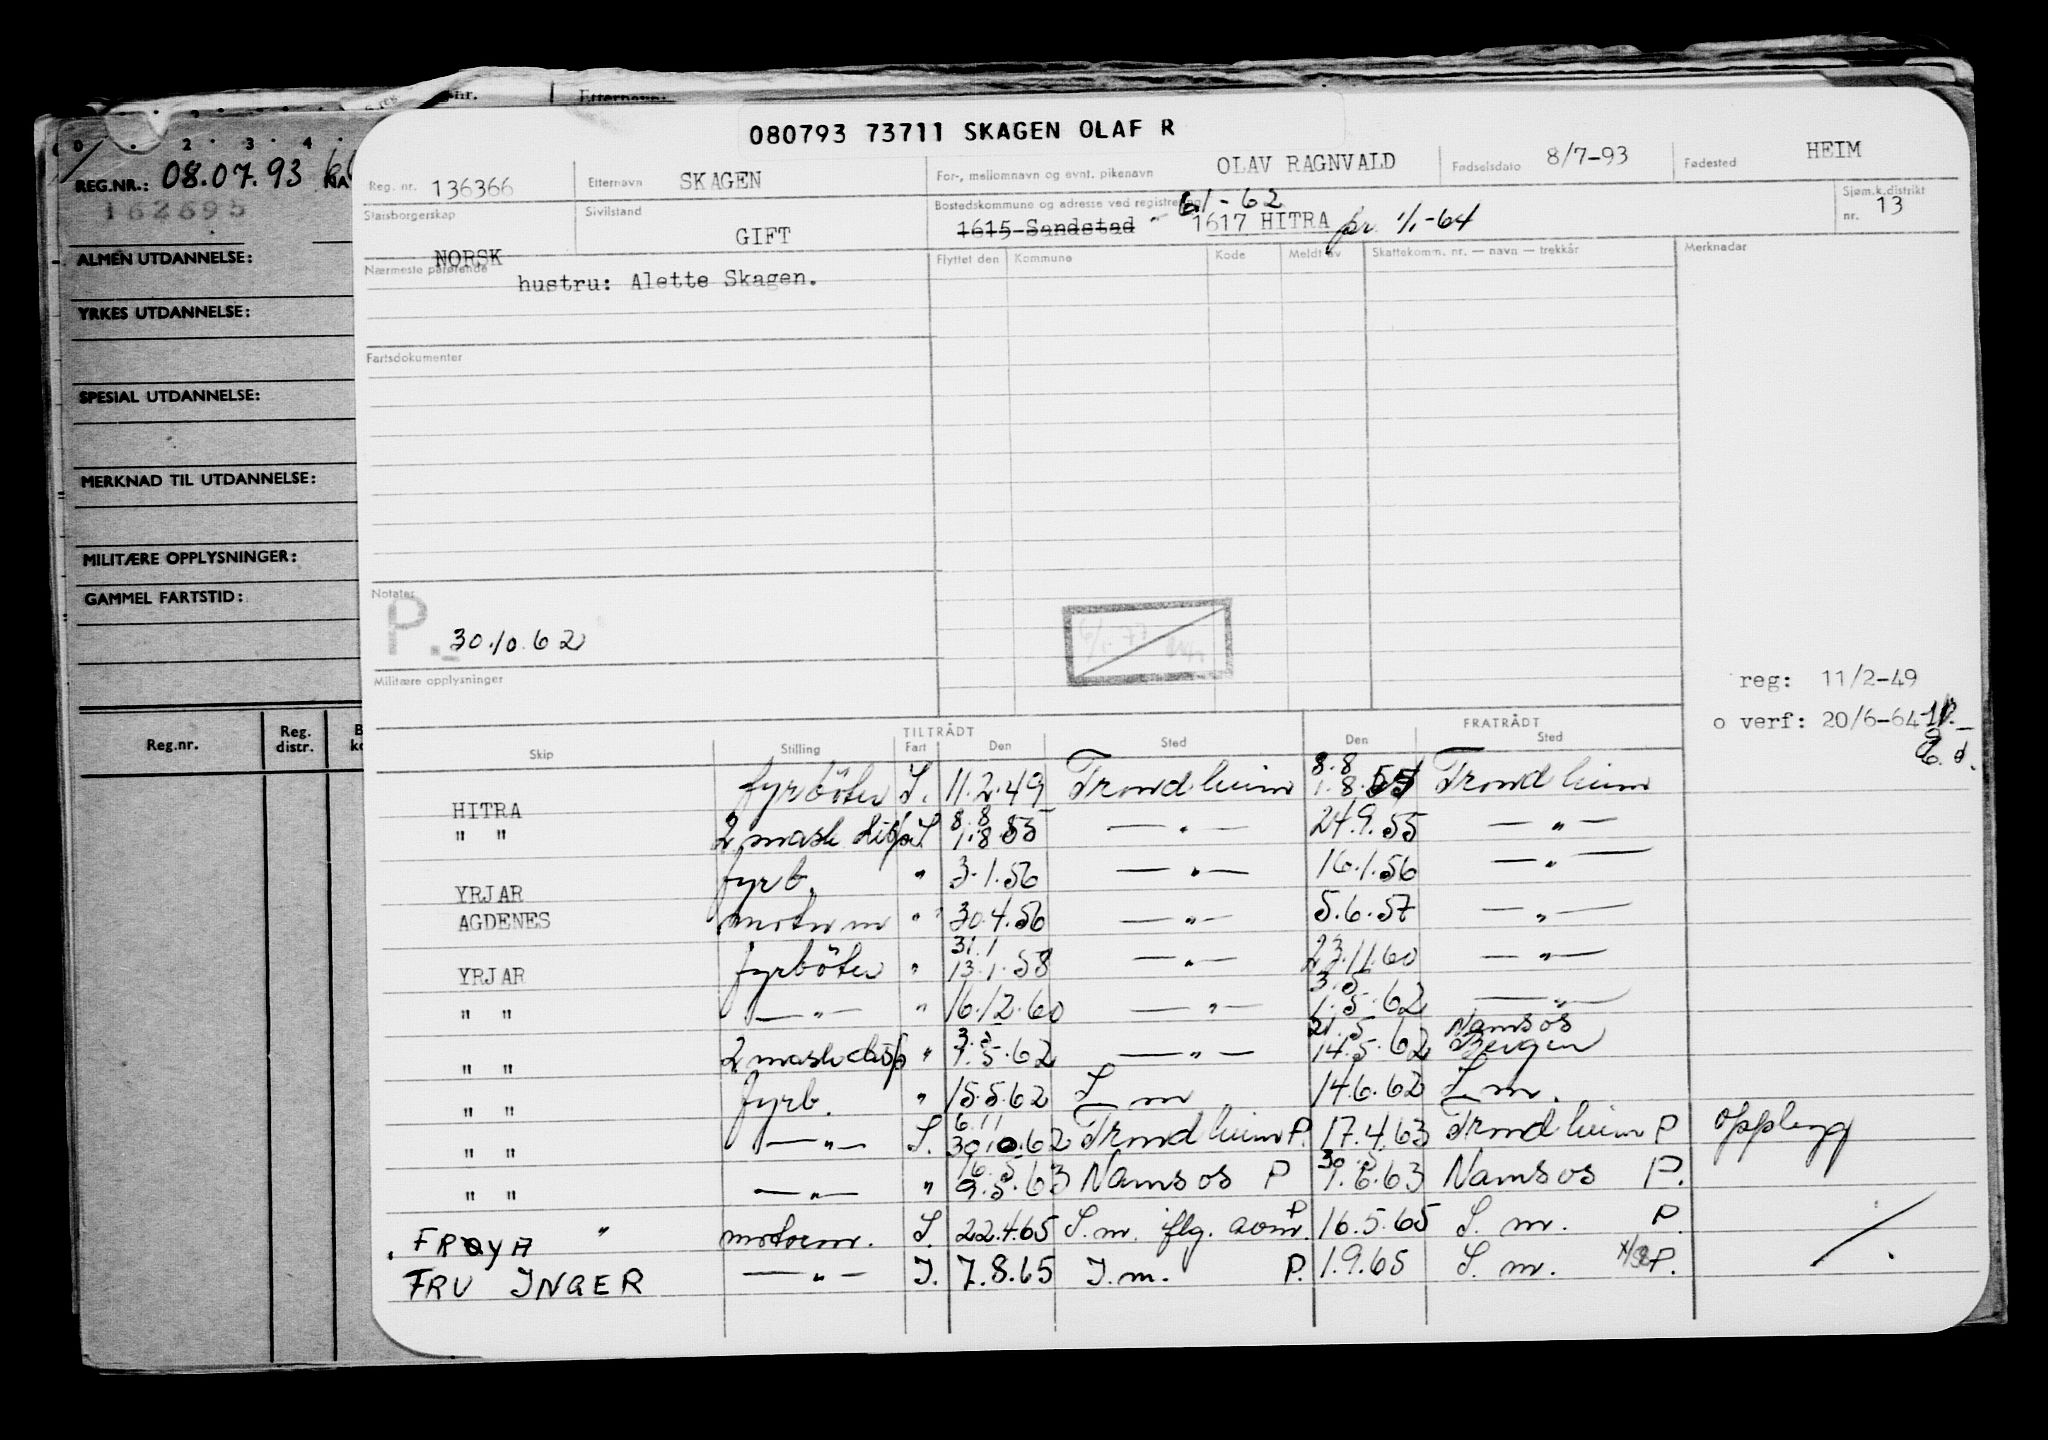 nr. Etternavn:
0 2 3 4
REG.NR.: 08.07.93
162695
ALMEN UTDANNELSE:
YRKES UTDANNELSE:
SPESIAL UTDANNELSE:
MERKNAD TIL UTDANNELSE:
MILITÆRE OPPLYSNINGER:
GAMMEL FARTSTID:
Reg.nr. Reg. distr.
080793 73711 SKAGEN OLAF R
Reg. nr. 136366 Etternavn SKAGEN For-, mellomnavn og evnt. pikenavn OLAV RAGNVALD Fødselsdato 8/7-93 Fødested HEIM
Statsborgerskap NORSK Sivilstand GIFT Bostedskommune og adresse ved registrering 1615 Sandstad - 1617 HITRA pr. 1/1-64 Sjøm.k.distrikt nr. 13
61-62
Nærmeste pårørende hustru: Alette Skagen.
Flyttet den Kommune Kode Meldt av Skattekomm. nr. — navn — trekkår Merknader
Fartsdokumenter
Notater
P. 30.10.62
Militære opplysninger
reg: 11/2-49
o verf: 20/6-64
TILTRÅDT FRATRÅDT
Skip Stilling Fart Den Sted Den Sted
HITRA fyrböter S. 11.2.49 Trondheim 8.8 1.8.55 Trondheim
" " 2 mask disp S. 8.8 1.8.55 — " — 24.9.55 — " —
YRJAR fyrb. " 3.1.56 — " — 16.1.56 — " —
AGDENES motorm " 30.4.56 — " — 5.6.57 — " —
YRJAR fyrböter " 31.1 13.1.58 — " — 23.11.60 — " —
" " — " — " 16.12.60 — " — 3.5 1.5.62 — " —
" " 2 mask disp " 3.5 1.5.62 — " — 21.5 14.5.62 Namsos Bergen
" " fyrb. " 15.5.62 S m 14.6.62 S m.
" " — " — S. 6.11 30.10.62 Trondheim P. 17.4.63 Trondheim P Opplegg
" " — " — " 16.5 9.5.63 Namsos P 30.5 1.6.63 Namsos P.
FRØYA " motorm. S. 22.4.65 S. m. iflg. aom. P 16.5.65 S. m. P.
FRU INGER — " — I. 7.8.65 I. m. P. 1.9.65 S. m. P.